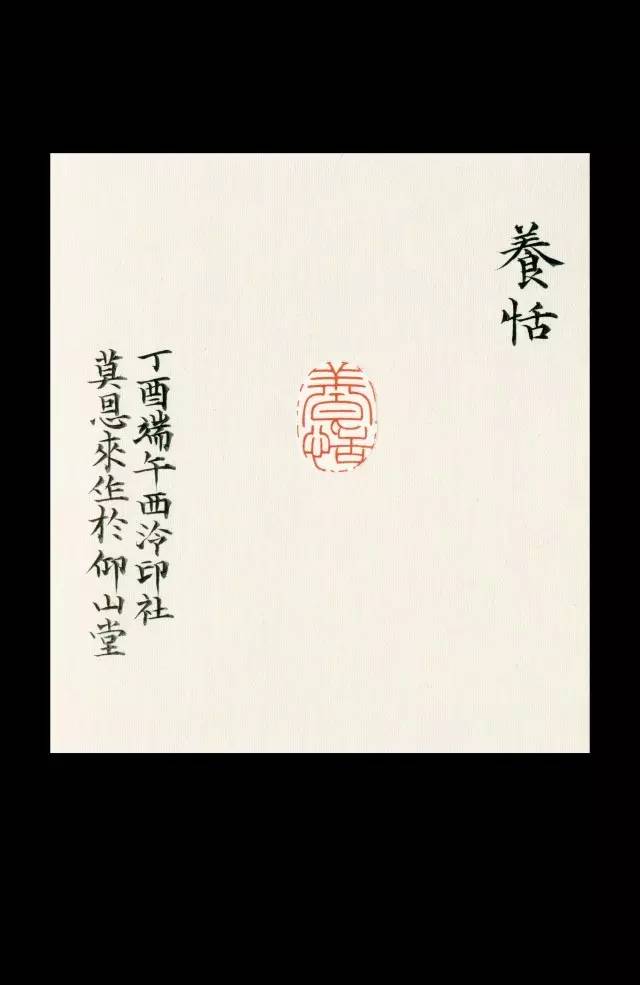 養恬
養恬
丁酉端午西泠印社
莫恩來作於仰山堂